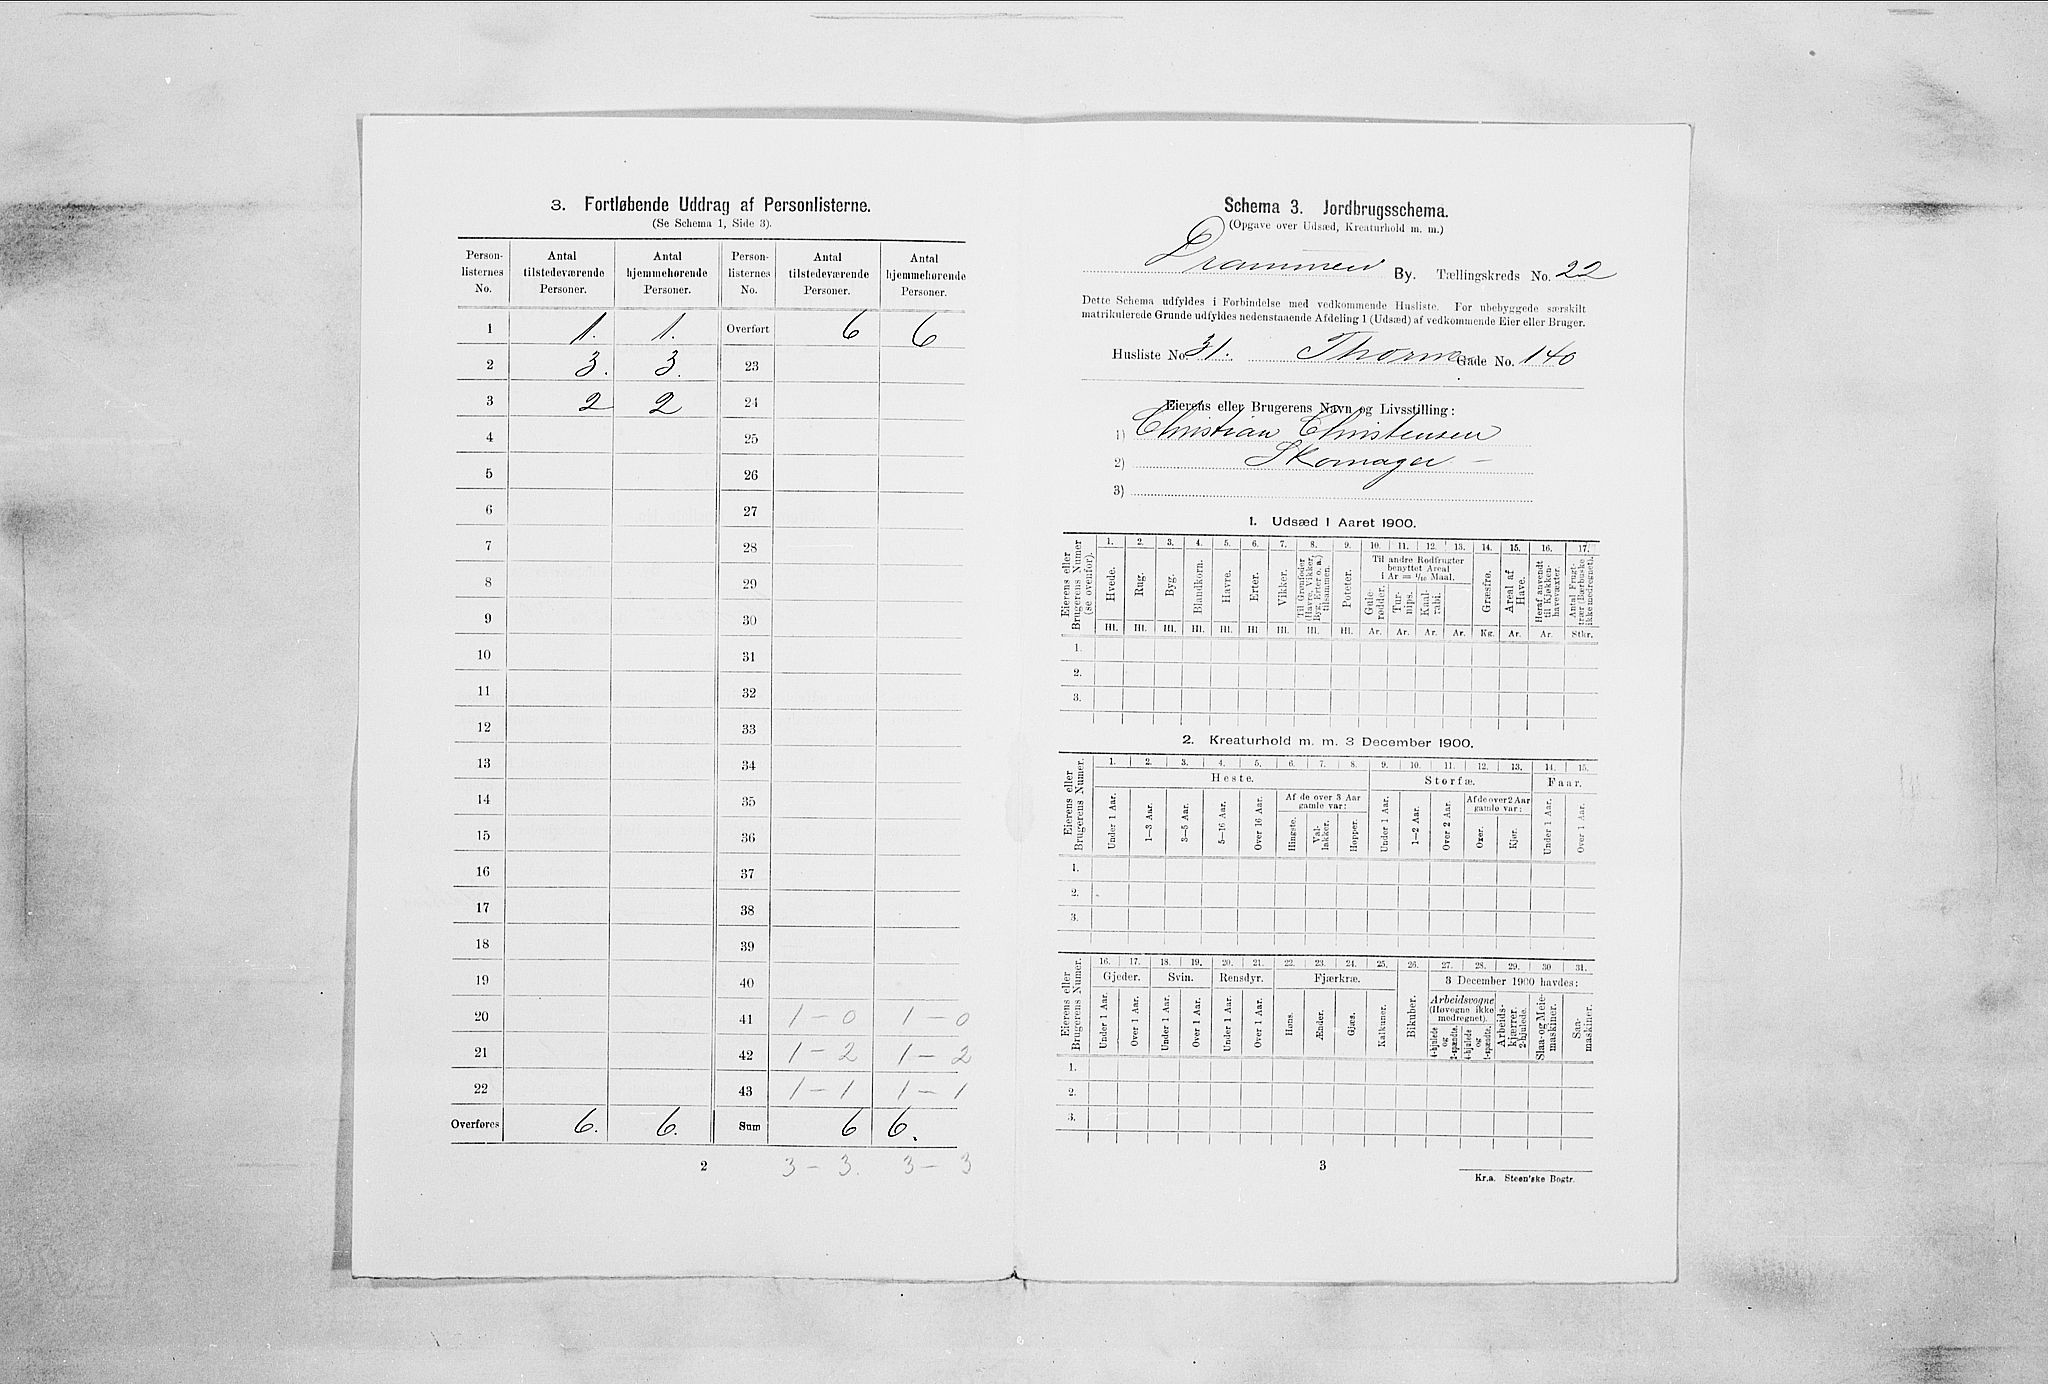 3. Fortløbende Uddrag af Personlisterne.
(Se Schema 1, Side 3).
Person-listernes No. Antal tilstedeværende Personer. Antal hjemmehørende Personer. Person-listernes No. Antal tilstedeværende Personer. Antal hjemmehørende Personer.
1 1. 1. Overført 6 6
2 3. 3. 23
3 2 2 24
4 25
5 26
6 27
7 28
8 29
9 30
10 31
11 32
12 33
13 34
14 35
15 36
16 37
17 38
18 39
19 40
20 41 1-0 1-0
21 42 1-2 1-2
22 43 1-1 1-1
Overføres 6. 6. Sum 6 6.
3-3. 3-3
2
Schema 3. Jordbrugsschema.
(Opgave over Udsæd, Kreaturhold m. m.)
Drammen By. Tællingskreds No. 22
Dette Schema udfyldes i Forbindelse med vedkommende Husliste. For ubebyggede særskilt
matrikulerede Grunde udfyldes nedenstaaende Afdeling 1 (Udsæd) af vedkommende Eier eller Bruger.
Husliste No. 31. Thorne Gade No. 140
Eierens eller Brugerens Navn og Livsstilling:
1) Christian Christensen
2) Skomager -
3)
1. Udsæd i Aaret 1900.
Eierens eller Brugerens Numer (se ovenfor).
1. 2. 3. 4. 5. 6. 7. 8. 9. 10. 11. 12. 13. 14. 15. 16. 17.
Til andre Rodfrugter benyttet Areal i Ar = 1/10 Maal.
Hvede. Rug. Byg. Blandkorn. Havre. Erter. Vikker. Til Grønfoder (Havre, Vikker, Byg, Erter o. a.) tilsammen. Poteter. Gule-rødder. Tur-nips. Kaal-rabi. Græsfrø. Areal af Have. Heraf anvendt til Kjøkken-havevæxter. Antal Frugt-trær (Bærbuske ikke medregnet).
Hl. Hl. Hl. Hl. Hl. Hl. Hl. Hl. Hl. Ar. Ar. Ar. Ar. Kg. Ar. Ar. Stkr.
1.
2.
3.
2. Kreaturhold m. m. 3 December 1900.
Eierens eller Brugerens Numer.
1. 2. 3. 4. 5. 6. 7. 8. 9. 10. 11. 12. 13. 14. 15.
Heste. Storfæ. Faar.
Af de over 3 Aar gamle var: Af de over 2 Aar gamle var:
Under 1 Aar. 1—3 Aar. 3—5 Aar. 5—16 Aar. Over 16 Aar. Hingste. Val-lakker. Hopper. Under 1 Aar. 1—2 Aar. Over 2 Aar. Oxer. Kjør. Under 1 Aar. Over 1 Aar.
1.
2.
3.
Eierens eller Brugerens Numer.
16. 17. 18. 19. 20. 21. 22. 23. 24. 25. 26. 27. 28. 29. 30 31.
Gjeder. Svin. Rensdyr. Fjærkræ. 3 December 1900 havdes:
Arbeidsvogne (Høvogne ikke medregnet).
Under 1 Aar. Over 1 Aar. Under 1 Aar. Over 1 Aar. Under 1 Aar. Over 1 Aar. Høns. Ænder. Gjæs. Kalkuner. Bikuber. 4-hjulede og 2-spændte. 4-hjulede og 1-spændte. Arbeids-kjærrer. 2-hjulede. Slaa- og Meie-maskiner. Saa-maskiner.
1.
2.
3.
3
Kr.a. Steen'ske Bogtr.